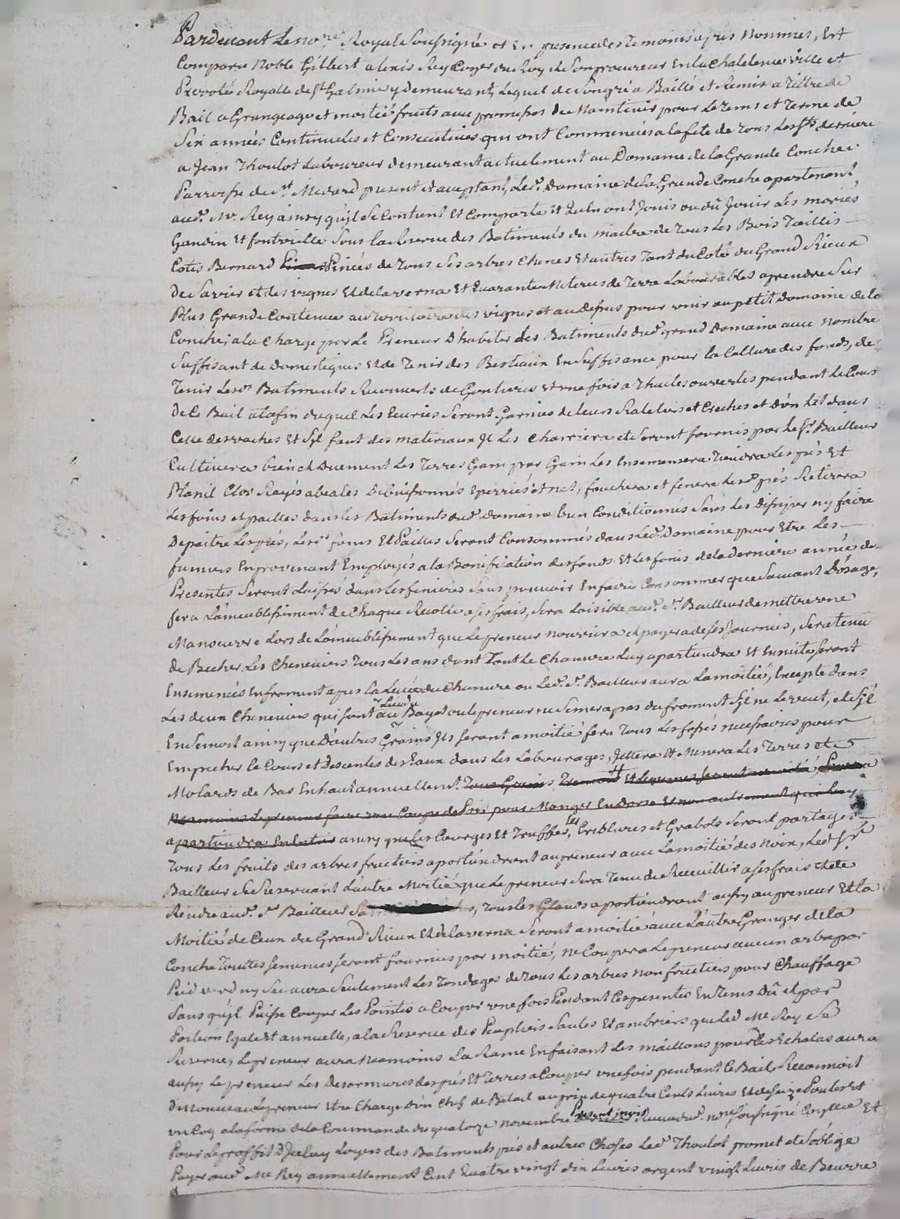 Pardevant Le no.re Royal Soussigné et En presence des Temoins apres Nommés, Est
Comparu Noble Gilbert alexis Rey Con.er du Roy et Son procureur En la Chatelenie ville et
Prevoté Royalle de S.t Galmier y demeurant, Lequel de Son gré a Baillé et Remis a titre de
Bail a Grangeage et moitié fruits avec promesse de Maintenir pour Le tems et Terme de
Six années Continuelles et Consecutives qui ont Commencés a la fete de tous Les S.ts derniere
a Jean Thoulot Laboureur demeurant actuellement au Domaine de la Grande Conche
Parroisse de S.t Medard present et acceptant, Led. Domaine de la Grande Conche apartenant
aud. M.r Rey ainsy qu'il Se Contient Et Comporte et qu'en ont Jouis ou dû Jouir Les mariés
Gandin Et fontville Sous la Reserve des Batiments du maitre de tous Les Bois Taillis
Cotes Bernard Pinées de tous Ses arbres Chenes Et autres Tant du Coté du Grand Rieux
de Savier et des vignes Et de la verna Et quarante Meterées de Terre Labourables a prendre Sur
Plus Grande Contenue au territoire des vignes et au dessus pour venir au petit Domaine de la
Conche; a la Charge par Le Preneur D'habiter des Batiments dud. grand Domaine avec nombre
Suffisant de Domestiques Et de Tenir des Bestiaux En Suffisance pour la Culture des fonds, de
Tenir Les Batiments Recouverts de Goutieres Et une fois a Thuiles ouvertes pendant le Cours
de Ce Bail a la fin duquel Les Ecuries Seront Garnies de Leurs Rateliers et Creches et d'un lit dans
Celle des vaches Et S'il faut des materiaux Il Les Charriera et Seront fournis par Le S.r Bailleur
Cultivera bien et Duement Les Terres Gain par Gain Les Ensemensera Tiendra Les prés Et
Planil Clos Rayés abeales Debuissonnés Eperriés et net, fauchera et fenera Les prés Retirera
Les foins et pailles dans les Batiments dud. Domaine bien Conditionnés Sans Les Dissiper ny faire
Depaitre Les prés, Les foins Et Pailles Seront Consommés dans Led. Domaine pour Etre Les
fumiers En provenant Employés a la Bonification des fonds Et Les foins de la derniere année des
Presentes Seront Laissés dans Les fenieres Sans pouvoir En faire Consommer que Suivant L'usage,
fera L'ameublissement de Chaque Recolte a Ses frais, Sera Loisible aud. S.r Bailleur de mettre une
Manoeuvre Lors de L'ameublissement que Le preneur nourrira et payera de Ses Journées, Sera tenu
de Becher Les Cheneviers Tous Les ans dont Tout Le Chanvre Luy apartiendra Et Ensuite Seront
Ensemencés En froment apres La Levée du Chanvre ou Led. S.r Bailleur aura La moitié, Excepté dans
Les deux Cheneviers qui Sont au Bayot ou Le preneur ne Semera pas du froment S'il ne Le veut, et S'il
En Semoit ainsy que d'autres Grains Ils Seront a moitié fera Tous Les fossés necessaires pour
Empecher le Cours et Descentes des Eaux dans Les Labourages, Jettera Et Menera Les Terres et
Molards de Bas En haut annuellement
ainsy que Les Courges Et Truffes, Criblures et Grabots Seront partagés
Tous Les fruits des arbres fructiers apartiendront au preneur avec La moitié des Noix, Led. S.r
Bailleur Se Reservant L'autre Moitié que Le preneur Sera Tenu de Recueillir a Ses frais Et de
Rendre aud. S.r Bailleur, Tous Les Glands apartiendront aussy au preneur Et La
Moitié de Ceux du Grand Rieux Et de la verna Seront a moitié avec L'autre Granger de la
Conche Toutes Semences Seront fournies par moitié, ne Coupera Le preneur aucun arbre par
Pied verd ny Sec aura Seulement Les Tondages de tous Les arbres non fructiers pour Chauffage
Sans qu'il Puisse Couper Les Pointes a Couper une fois Pendant Ces presentes En Tems dû et par
Portion Egale et annuelle, a la Reserve des Peupliers Saules Et ambriers que Led. M.e Rey Se
Reserve, Le preneur aura Neamoins La Rame En faisant Les maillons pour Les Echalas aura
aussy Le preneur Les Desormures des prés Et Terres a Couper une fois pendant Ce Bail Reconnoit
de nouveau Le preneur Etre Chargé D'un Chef de Betail au prix de quatre Cents Livres Et de Seize Poules et
un Coq a la forme de la Commande du quatorze novembre present mois Receu par No.re Soussigné Et
Pour Le proffit D'Iceluy Loyers des Batiments prés et autres Choses Led. Thoulot promet et S'oblige
Payer aud. M.e Rey annuellement Cent quatre vingt dix Livres argent vingt Livres de Beurre